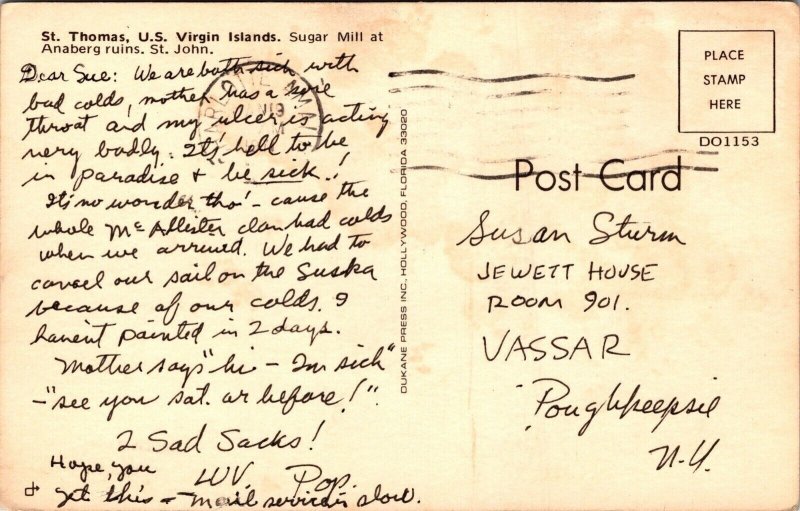 St. Thomas, U.S. Virgin Islands. Sugar Mill at
Anaberg ruins. St. John.
Dear Sue: We are both sick with
bad colds, mother has a sore
throat and my ulcer is acting
very badly. It's hell to be
in paradise + be sick.!
It's no wonder tho' - cause the
whole McAllister clan had colds
when we arrived. We had to
cancel our sail on the Suska
because of our colds. I
haven't painted in 2 days.
Mother says "hi - I'm sick"
- "see you sat. or before!"
2 Sad Sacks!
LUV. Pop.
Hope, you
get this - mail service is slow.
DUKANE PRESS INC. HOLLYWOOD, FLORIDA 33020
PLACE
STAMP
HERE
DO1153
Post Card
Susan Sturm
JEWETT HOUSE
ROOM 901.
VASSAR
Poughkeepsie
N.Y.